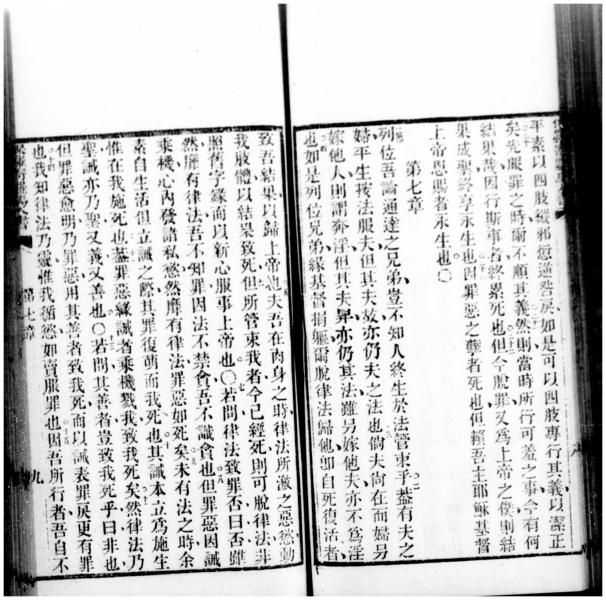 平素以四肢縱邪慾過愆戾如是可以四肢專行其義以潔正
矣先服罪之時爾不順其義然則當時所行可羞之事今有何
結果哉因行斯事者終累死也但今脫罪又為上帝之僕則結
果成聖終享永生也因罪惡之孽者死也但賴吾主耶穌基督
上帝恩賜者永生也〇
第七章
列位吾論通達之兄弟豈不知人終生於法管束乎蓋有夫之
婦平生按法服夫但其夫故亦仍夫之法也倘夫尚在而婦另
嫁他人則謂奔淫但其夫暴亦仍其法雖另嫁他夫亦不為淫
也如是列位兄弟緣基督捐軀爾脫律法歸他即自死復活者
致吾結果以歸上帝也夫吾在肉身之時律法所激之惡慾動
我肢體以結果致死但所管束我者今已經死則可脫律法非
照舊字緣而以新心服事上帝也〇若問律法致罪否曰否雖
然靡有律法吾不知罪因法不禁貪吾不識貪也但罪惡因誡
乘機心內發諸私慾然靡有律法罪惡如死矣未有法之時余
素自生活但立誡之際其罪復萌而我死也其誡本立為施生
惟在我施死也蓋罪惡緣誡者乘機戮我致我死矣然律法乃
聖誡亦乃聖又義又善也〇若問其善者豈致我死乎曰非也
但罪惡愈明乃罪惡用其善者致我死而以誡表罪戾更有罪
也我知律法乃靈惟我循慾如賣服罪也因吾所行者吾自不
第七章
九